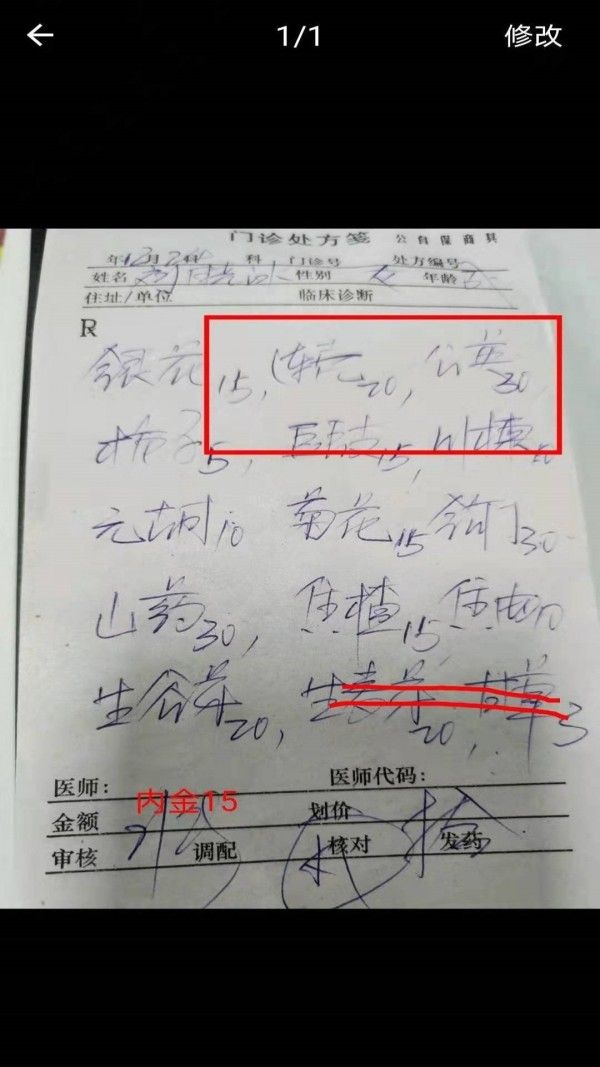 1/1 修改
门诊处方笺 公自保商其
年12月2 科 门诊号 处方编号
姓名 刘 性别 女 年龄
住址/单位 临床诊断
R
银花15, 连壳20, 公英30
栀子5, 15, 川楝
元胡10 菊花15 30
山药30, 焦楂15 焦曲10
生谷芽20, 生麦芽20, 甘草3
医师: 医师代码:
内金15
金额 划价
审核 调配 核对 发药